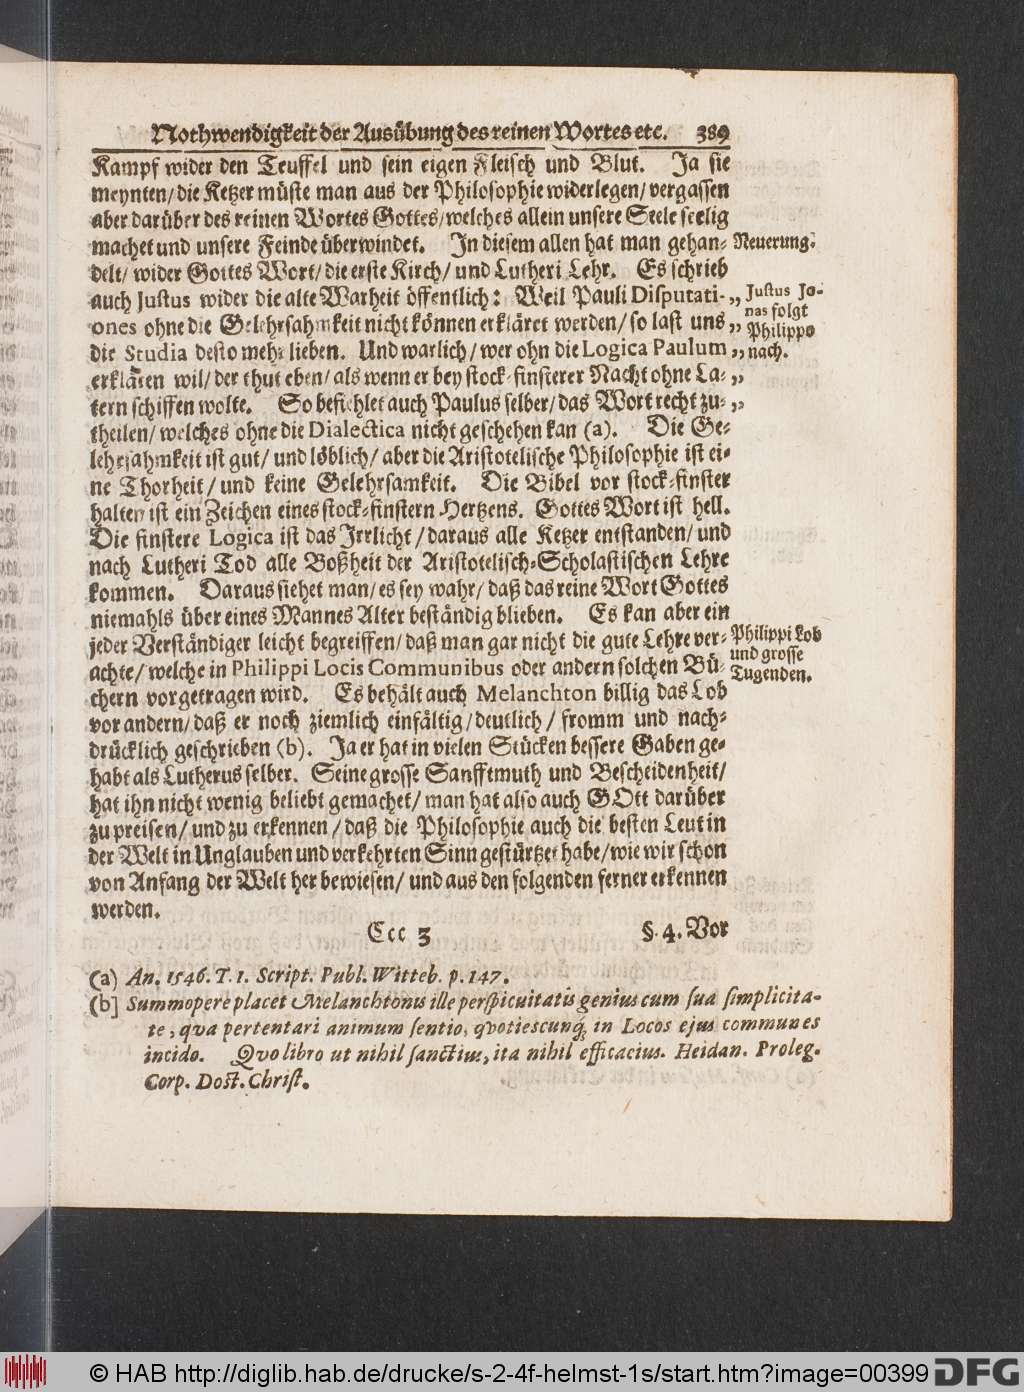 Nothwendigkeit der Ausübung des reinen Wortes etc. 389
Kampf wider den Teuffel und sein eigen Fleisch und Blut. Ja sie
meynten/ die Ketzer müste man aus der Philosophie widerlegen/ vergassen
aber darüber des reinen Wortes Gottes/ welches allein unsere Seele seelig
machet und unsere Feinde überwindet. In diesem allen hat man gehan-
Neuerung.
delt/ wider Gottes Wort/ die erste Kirch/ und Lutheri Lehr. Es schrieb
auch Justus wider die alte Warheit öffentlich: Weil Pauli Disputati- „
Justus Jo-
ones ohne die Gelehrsahmkeit nicht können erkläret werden/ so last uns „
nas folgt
Philippo
die Studia desto mehr lieben. Und warlich/ wer ohn die Logica Paulum „
nach.
erklären wil/ der thut eben/ als wenn er bey stock-finsterer Nacht ohne La- „
tern schiffen wolte. So befiehlet auch Paulus selber/ das Wort recht zu- „
theilen/ welches ohne die Dialectica nicht geschehen kan (a). Die Ge-
lehrsahmkeit ist gut/ und löblich/ aber die Aristotelische Philosophie ist ei-
ne Thorheit/ und keine Gelehrsamkeit. Die Bibel vor stock-finster
halten ist ein Zeichen eines stock-finstern Hertzens. Gottes Wort ist hell.
Die finstere Logica ist das Irrlicht/ daraus alle Ketzer entstanden/ und
nach Lutheri Tod alle Boßheit der Aristotelisch-Scholastischen Lehre
kommen. Daraus siehet man/ es sey wahr/ daß das reine Wort Gottes
niemahls über eines Mannes Alter beständig blieben. Es kan aber ein
jeder Verständiger leicht begreiffen/ daß man gar nicht die gute Lehre ver-
Philippi Lob
und grosse
Tugenden.
achte/ welche in Philippi Locis Communibus oder andern solchen Bü-
chern vorgetragen wird. Es behält auch Melanchton billig das Lob
vor andern/ daß er noch ziemlich einfältig/ deutlich/ fromm und nach-
drücklich geschrieben (b). Ja er hat in vielen Stücken bessere Gaben ge-
habt als Lutherus selber. Seine grosse Sanfftmuth und Bescheidenheit/
hat ihn nicht wenig beliebt gemachet/ man hat also auch GOtt darüber
zu preisen/ und zu erkennen/ daß die Philosophie auch die besten Leut in
der Welt in Unglauben und verkehrten Sinn gestürtzet habe/ wie wir schon
von Anfang der Welt her bewiesen/ und aus den folgenden ferner erkennen
werden.
Ccc 3 §. 4. Vor
(a) An. 1546. T. 1. Script. Publ. Witteb. p. 147.
(b] Summopere placet Melanchtonus ille perspicuitatis genius cum sua simplicita-
te, qva pertentari animum sentio, qvotiescunq;, in Locos ejus communes
incido. Qvo libro ut nihil sanctius, ita nihil efficacius. Heidan. Proleg.
Corp. Doct. Christ.
© HAB http://diglib.hab.de/drucke/s-2-4f-helmst-1s/start.htm?image=00399 DFG